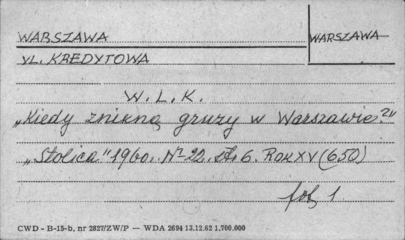 WARSZAWA
WARSZAWA
UL. KREDYTOWA
W. L. K.
„Kiedy znikną gruzy w Warszawie?"
„Stolica" 1960. Nr 22. st. 6. ROK XV (650)
fot 1
CWD - B-15-b, nr 2827/ZW/P — WDA 2694 13.12.62 1,700.000